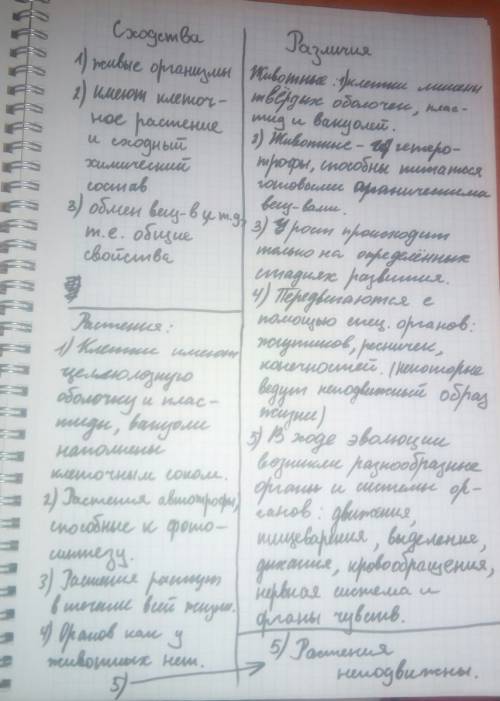 Сходства
1) живые организмы
2) имеют клеточ-
ное растение
и сходный
химический
состав
3) обмен вещ-в и т.д,
т.е. общие
свойства
Растения:
1) Клетки имеют
целлюлозную
оболочку и плас-
тиды, вакуоли
наполнены
клеточным соком.
2) Растения автотрофы,
способные к фото-
синтезу.
3) Растения растут
в течение всей жизни.
4) Органов как у
животных нет.
5)
Различия
Животные: 1) клетки лишены
твёрдых оболочек, плас-
тид и вакуолей.
2) Животные - гетеро-
трофы, способны питаться
готовыми органическима
вещ-вами.
3) У рост происходит
только на определённых
стадиях развития.
4) Передвигаются с
помощью спец. органов:
жгутиков, ресничек,
конечностей. (некоторые
ведут неподвижный образ
жизни)
5) В ходе эволюции
возникли разнообразные
органы и системы ор-
ганов: движения,
пищеварения, выделение,
дыхания, кровообращения,
нервная система и
органы чувств.
5) Растения
неподвижны.